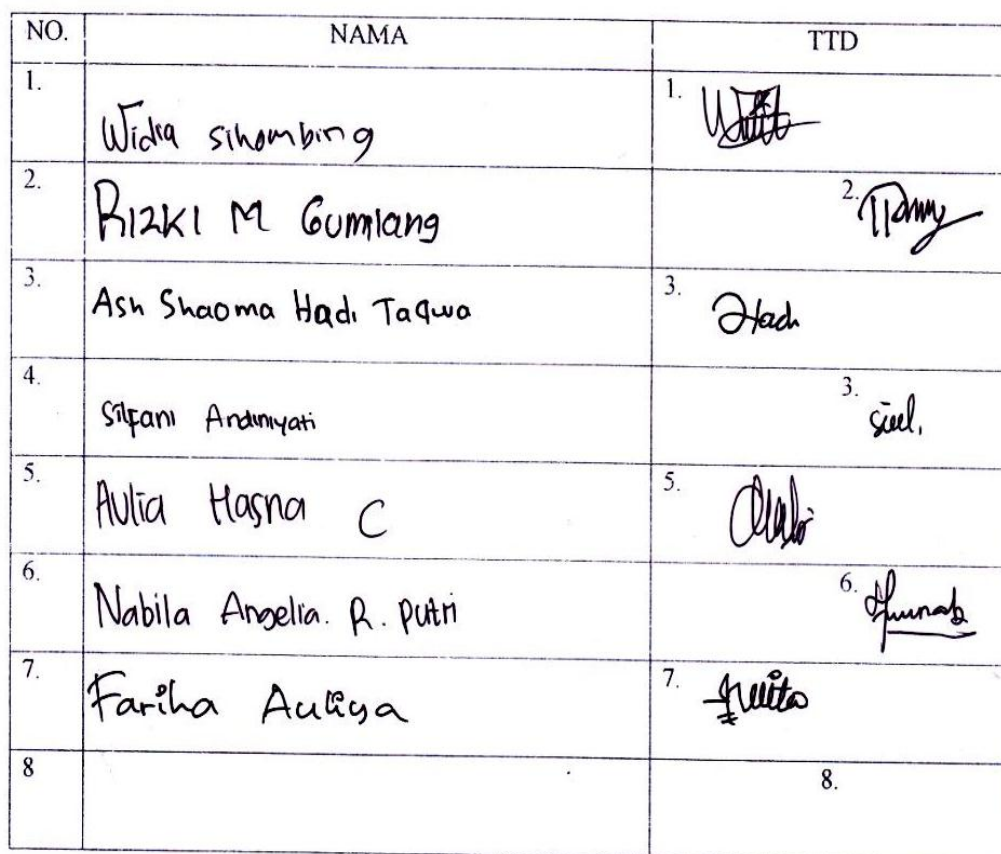 NO. NAMA TTD
1. Widia sihombing 1.
2. RIZKI M Gumlang 2.
3. Ash Shaoma Hadi Taqwa 3. Hadi
4. Silfani Andiniyati 3.
5. Aulia Hasna C 5.
6. Nabila Angelia. R. Putri 6.
7. Fariha Auliya 7.
8 8.